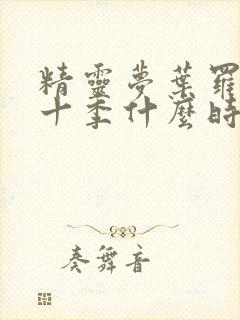 精靈夢葉羅
十季什麼時
奏舞音